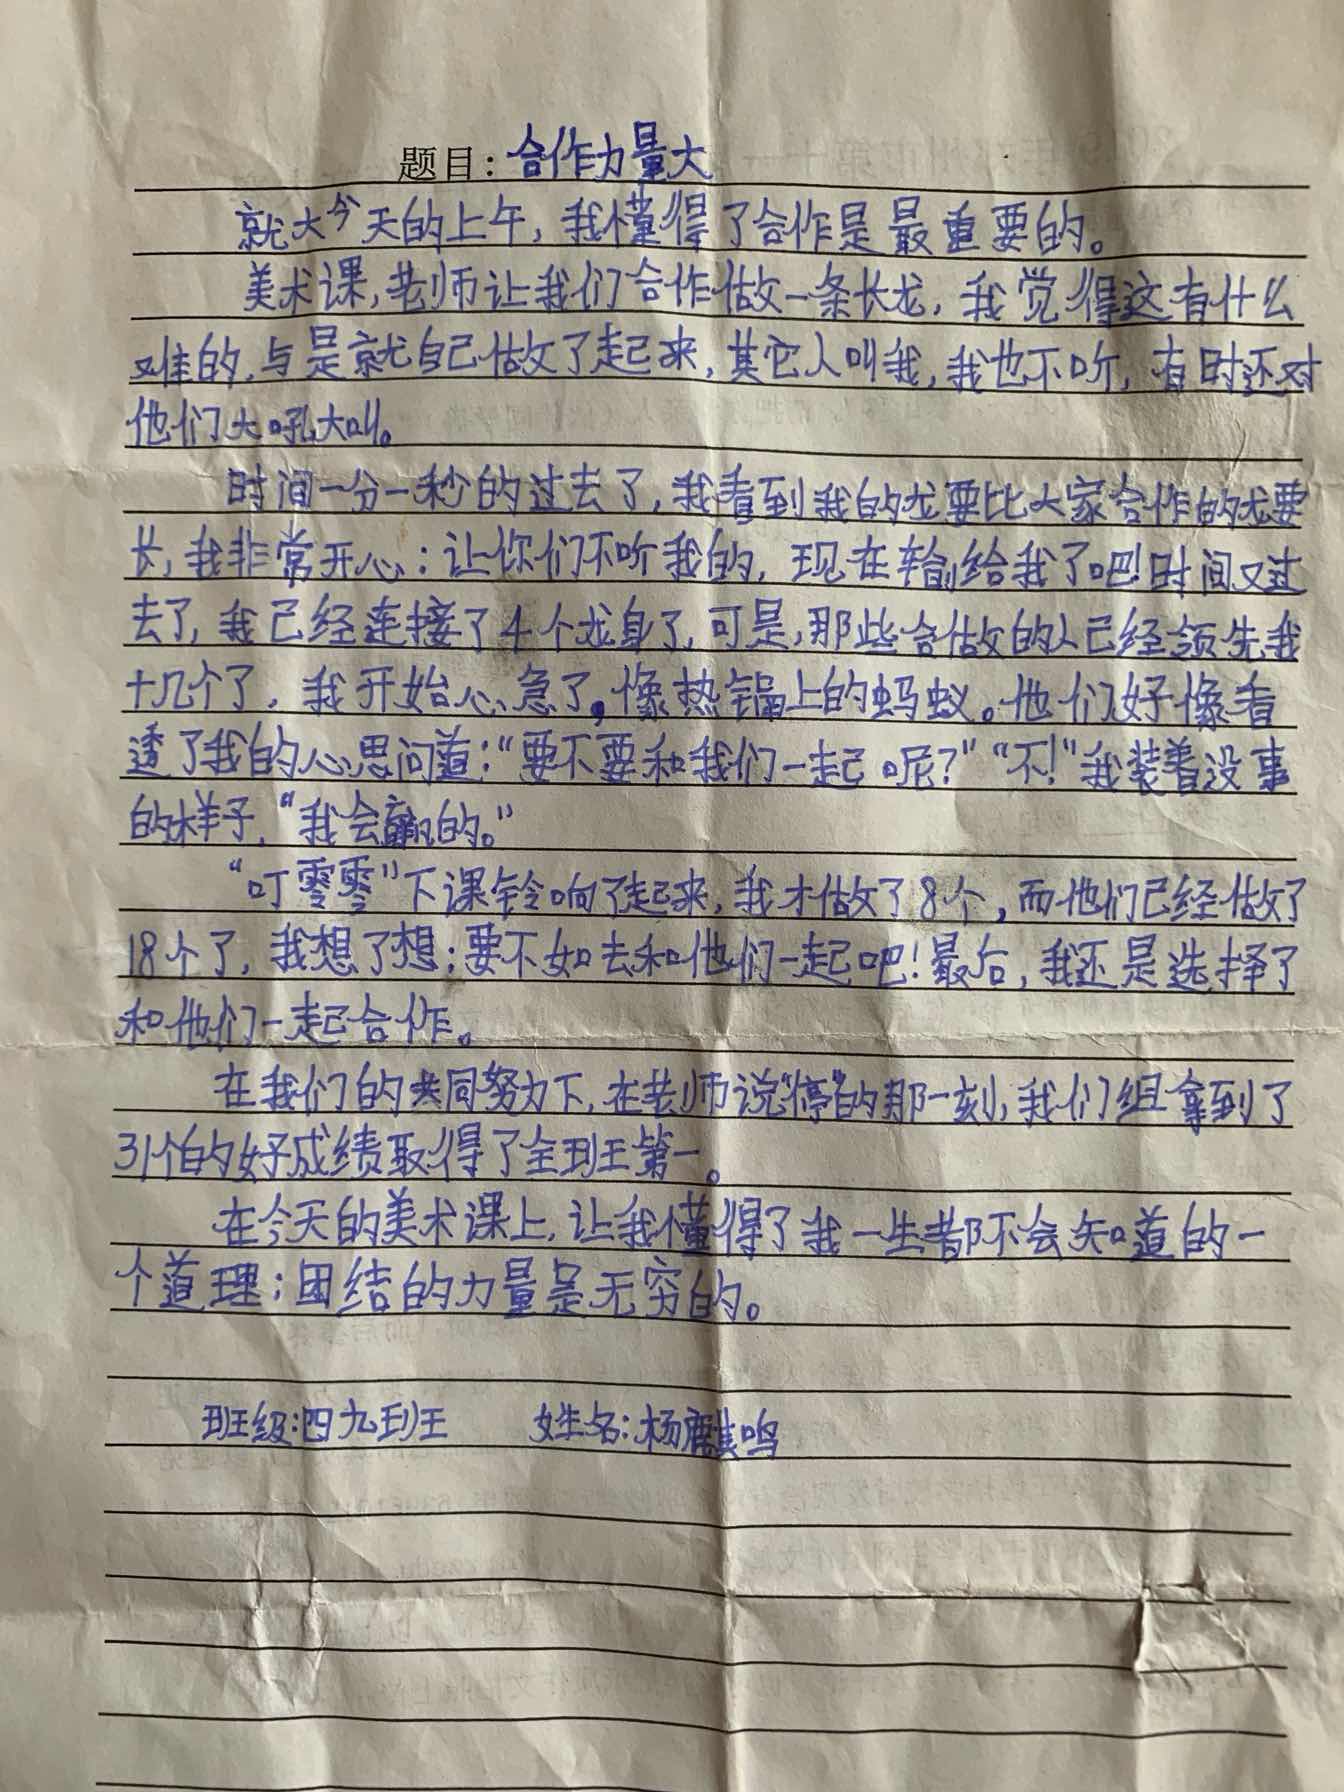 题目：合作力量大
就大今天的上午，我懂得了合作是最重要的。
美术课，老师让我们合作做一条长龙，我觉得这有什么
难的，与是就自己做了起来，其它人叫我，我也不听，有时还对
他们大吼大叫。
时间一分一秒的过去了，我看到我的龙要比大家合作的龙要
长，我非常开心：让你们不听我的，现在输给我了吧！时间又过
去了，我已经连接了4个龙身了，可是，那些合做的人已经领先我
十几个了，我开始心急了，像热锅上的蚂蚁。他们好像看
透了我的心思问道：“要不要和我们一起呢？”“不！”我装着没事
的样子，“我会赢的。”
“叮零零”下课铃响了起来，我才做了8个，而他们已经做了
18个了，我想了想：要不如去和他们一起吧！最后，我还是选择了
和他们一起合作。
在我们的共同努力下，在老师说“停”的那一刻，我们组拿到了
31个的好成绩取得了全班第一。
在今天的美术课上，让我懂得了我一生都不会知道的一
个道理：团结的力量是无穷的。
班级：四九班 姓名：杨麒鸣